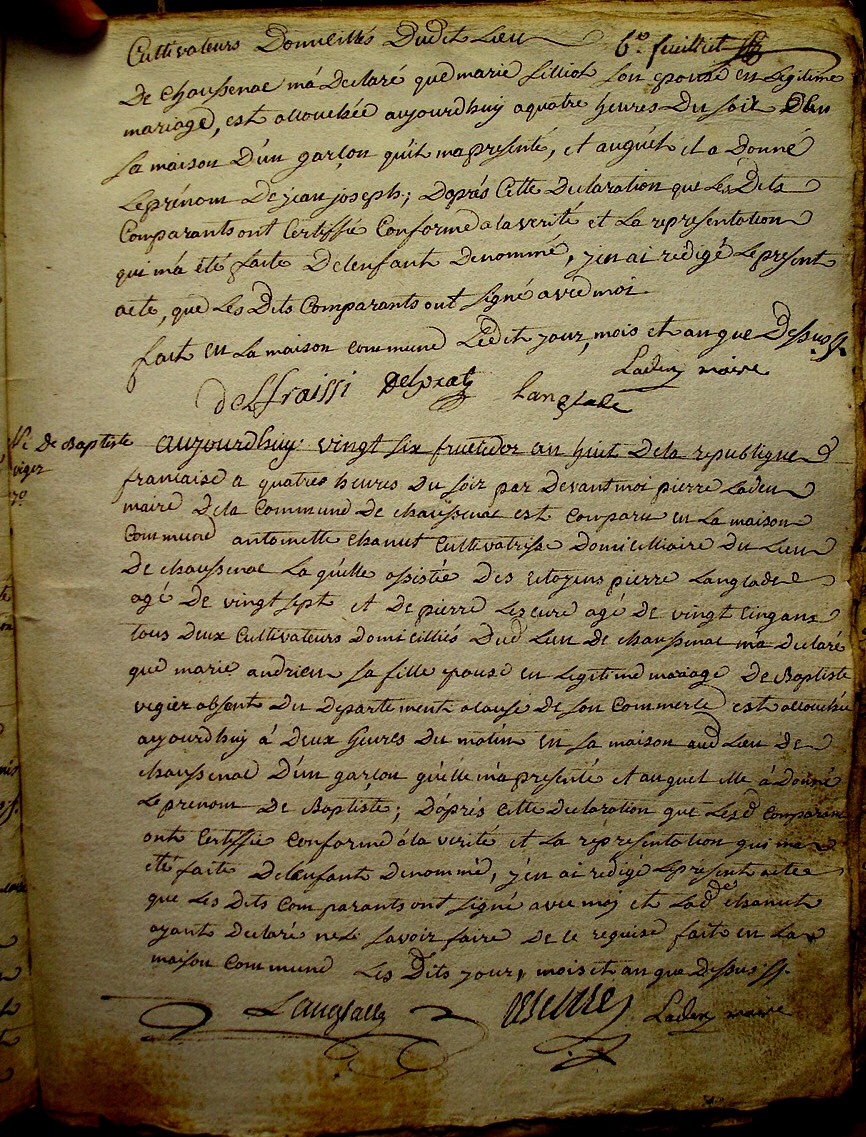 Cultivateurs Domiciliés Dudit Lieu 6e. feuillet
De chaussenac m'a Declaré que marie filliol son epouse en Legitime
mariage, est accouchée aujourdhuy a quatre heures Du soir Dans
sa maison D'un garçon qu'il ma presenté, et auquel il a Donné
Le prénom De jean joseph; Daprés Cette Declaration que Les Dits
Comparants ont Certiffié Conforme a la verité et La representation
qui m'a été faite De lenfant Denommé, j'en ai redigé Le present
acte, que Les Dits Comparants ont signé avec moi
fait en La maison commune Ledit jour, mois et an que Dessus
Laden maire
Delfraissi Delprat Langlade
Ne. De Baptiste
vigier
aujourdhuy vingt six fructidor an huit De la republique
francaise a quatre heures Du soir par Devant moi pierre Laden
maire De la Commune De chaussenac est Comparu en La maison
Commune antoinette chanut Cultivatrisse Domiciliaire Du Lieu
De chaussenac La quelle assistée Des citoyens pierre Langlade
agé De vingt sept et De pierre Lescure agé De vingt cinq ans
tous deux Cultivateurs Domiciliés Dud Lieu De chaussenac m'a declaré
que marie andrieu sa fille epouse en Legitime mariage De Baptiste
vigier absent Du Departement a cause De son Commerce est accouchée
aujourdhuy à Deux heures Du matin en sa maison aud Lieu De
chaussenac D'un garçon qu'elle m'a presenté et auquel elle à Donné
Le prenom De Baptiste; Daprés Cette Declaration que Les d comparants
ont Certiffié Conforme á la verité et La représentation qui m'a
eté faite De lenfant Denommé, j'en ai redigé Le present acte
que Les Dits Comparants ont signé avec moi et Lade chanut
ayant Declaré ne Le savoir faire De ce requise fait en La
maison Commune Les Dits jour, mois et an que Dessus
Langlade Lescure Laden maire